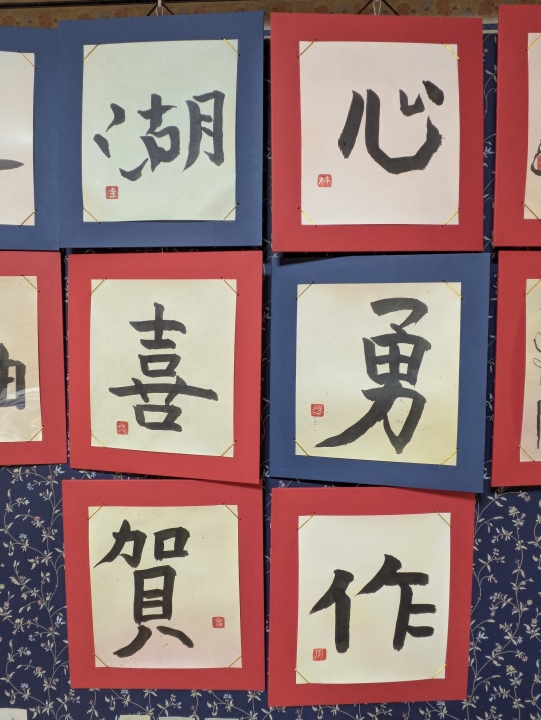 湖
心
喜
勇
賀
作